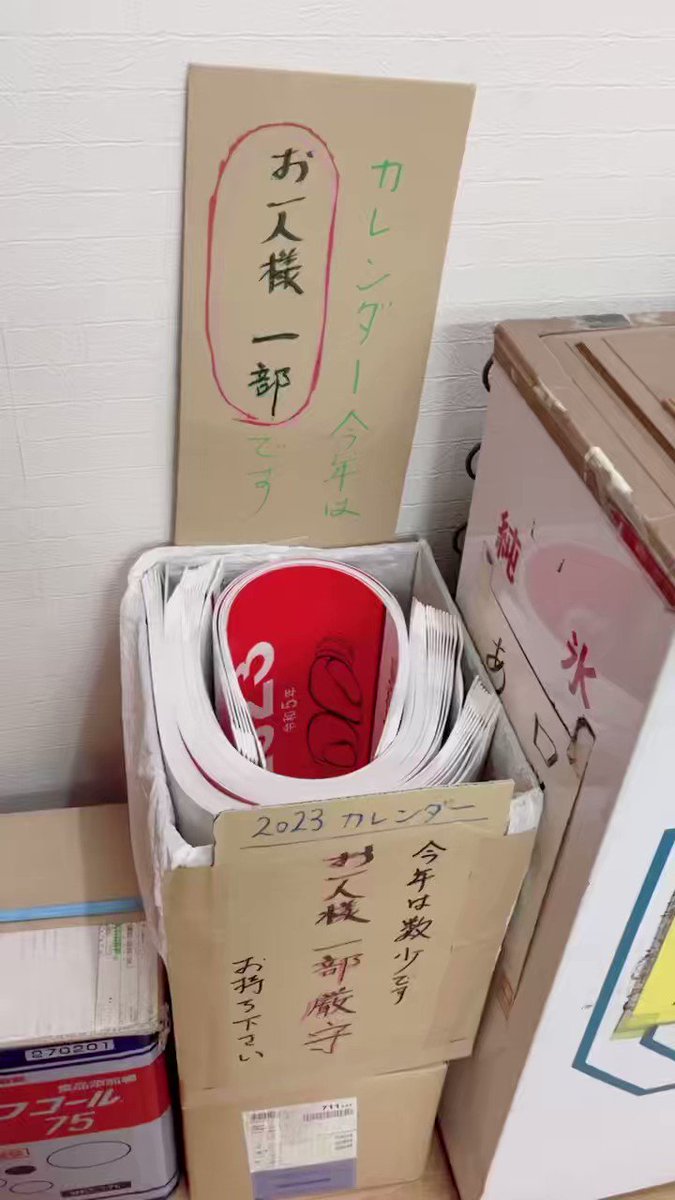 カレンダー今年は
お一人様 一部です
2023
令和5年
2023 カレンダー
今年は数少です
お一人様 一部厳守
お持ち下さい
純
氷
あ
270201
食品添加物
フコール
75
711